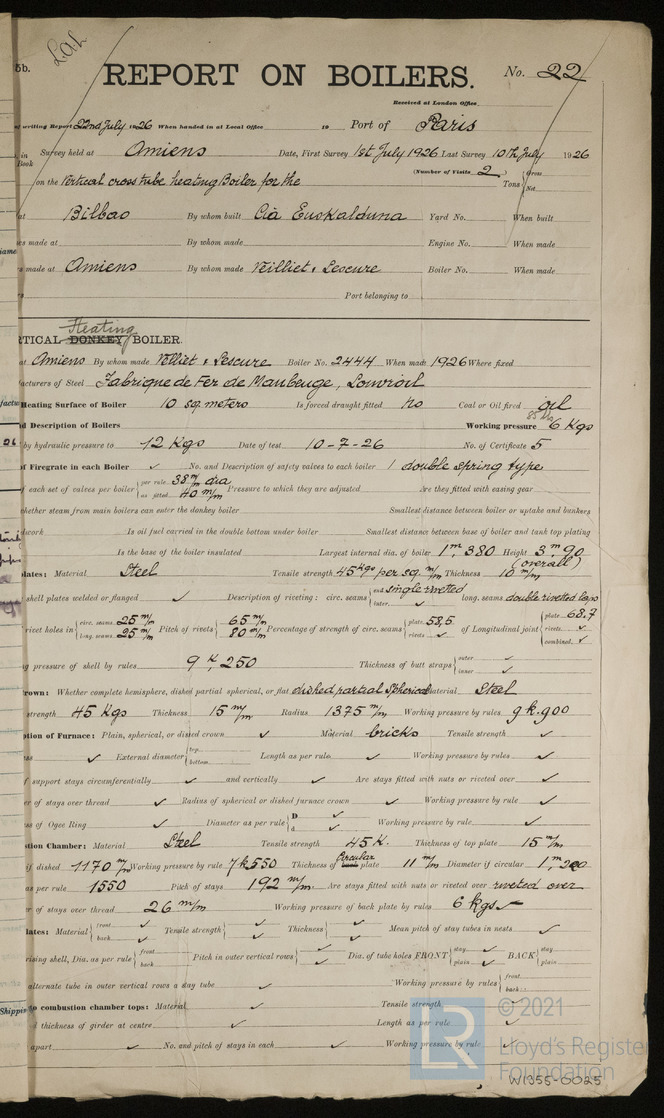 5b.
REPORT ON BOILERS. No. 22
Received at London Office
writing Report 22nd July 1926 When handed in at Local Office 19 Port of Paris
in Survey held at Amiens Date, First Survey 1st July 1926 Last Survey 10th July 1926
Book (Number of Visits 2 Gross
on the Vertical cross tube heating Boiler for the Tons Net
at Bilbao By whom built Cia Euskalduna Yard No. When built
es made at By whom made Engine No. When made
s made at Amiens By whom made Veilliet & Lescure Boiler No. When made
Port belonging to
Heating
RTICAL DONKEY BOILER.
at Amiens By whom made Velliet & Lescure Boiler No. 2444 When made 1926 Where fixed
acturers of Steel Fabrique de Fer de Maubeuge, Louvroil
Heating Surface of Boiler 10 sq. meters Is forced draught fitted No Coal or Oil fired oil
d Description of Boilers Working pressure 6 Kgs
26 by hydraulic pressure to 12 Kgs Date of test 10-7-26 No. of Certificate 5
of Firegrate in each Boiler ✓ No. and Description of safety valves to each boiler 1 double spring type
of each set of valves per boiler per rule 38 m/m dia as fitted 40 m/m Pressure to which they are adjusted Are they fitted with easing gear
hether steam from main boilers can enter the donkey boiler Smallest distance between boiler or uptake and bunkers
dwork Is oil fuel carried in the double bottom under boiler Smallest distance between base of boiler and tank top plating
Is the base of the boiler insulated Largest internal dia. of boiler 1m,380 Height 3m,90 (overall)
lates: Material Steel Tensile strength 45 Kgs per sq. m/m Thickness 10 m/m
shell plates welded or flanged ✓ Description of riveting: circ. seams end single riveted inter. ✓ long. seams double riveted laps
rivet holes in circ. seams 25 m/m long. seams 25 m/m Pitch of rivets 65 m/m 80 m/m Percentage of strength of circ. seams plate 58,5 rivets ✓ of Longitudinal joint plate 68.7 rivets ✓ combined ✓
g pressure of shell by rules 9 K,250 Thickness of butt straps outer ✓ inner ✓
rown: Whether complete hemisphere, dished partial spherical, or flat dished partial Spherical Material Steel
strength 45 Kgs Thickness 15 m/m Radius 1375 m/m Working pressure by rules 9k.900
ption of Furnace: Plain, spherical, or dished crown ✓ Material bricks Tensile strength ✓
ss ✓ External diameter top bottom Length as per rule ✓ Working pressure by rules ✓
f support stays circumferentially ✓ and vertically ✓ Are stays fitted with nuts or riveted over ✓
er of stays over thread ✓ Radius of spherical or dished furnace crown ✓ Working pressure by rule ✓
ss of Ogee Ring ✓ Diameter as per rule D ✓ d ✓ Working pressure by rule ✓
stion Chamber: Material Steel Tensile strength 45 K. Thickness of top plate 15 m/m
if dished 1170 m/m Working pressure by rule 7k550 Thickness of Circular plate 11 m/m Diameter if circular 1m,200
as per rule 1550 Pitch of stays 192 m/m. Are stays fitted with nuts or riveted over riveted over
r of stays over thread 26 m/m Working pressure of back plate by rules 6 kgs ✓
lates: Material front ✓ back ✓ Tensile strength ✓ ✓ Thickness ✓ ✓ Mean pitch of stay tubes in nests ✓
rising shell, Dia. as per rule front back Pitch in outer vertical rows ✓ ✓ Dia. of tube holes FRONT stay ✓ plain ✓ BACK stay plain
alternate tube in outer vertical rows a stay tube ✓ Working pressure by rules front back
to combustion chamber tops: Material ✓ Tensile strength ✓
d thickness of girder at centre ✓ Length as per rule ✓
apart ✓ No. and pitch of stays in each ✓ Working pressure by rule ✓
Shippin
LR
© 2021
Lloyd's Register
Foundation
W1355-0025